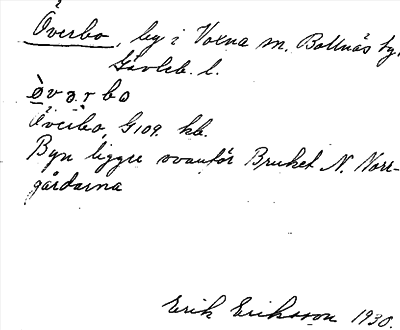 Överbo, by i Voxna sn. Bollnäs tg.
Gävleb. l.
ø̀vərbo
Överbo, G109. kb.
Byn ligger ovanför Bruket N. Norr-
gårdarna
Erik Eriksson 1930.